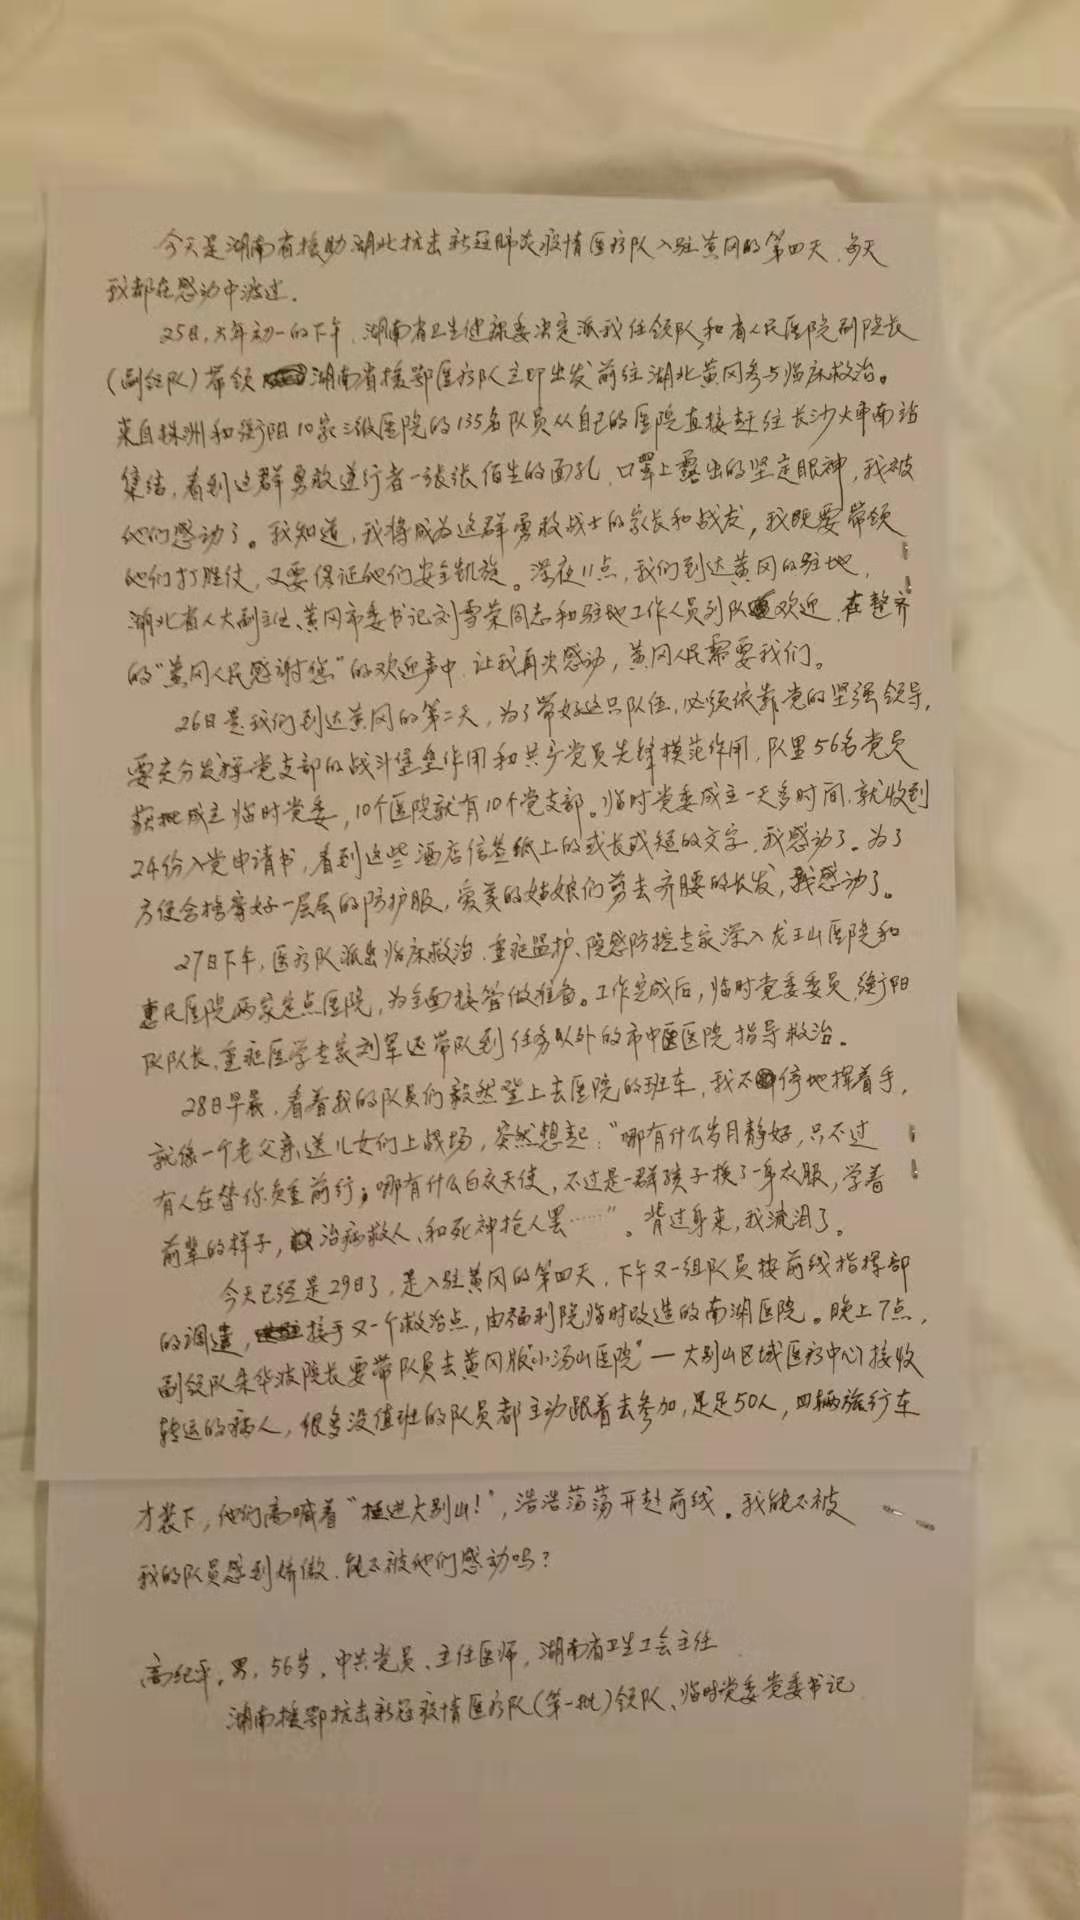 今天是湖南省援助湖北抗击新冠肺炎疫情医疗队入驻黄冈的第四天，每天
我都在感动中渡过.
25日，大年初一的下午，湖南省卫生健康委决定派我任领队和省人民医院副院长
(副领队)带领湖南省援鄂医疗队立即出发前往湖北黄冈参与临床救治。
来自株洲和衡阳10家三级医院的135名队员从自己的医院直接赶往长沙火车南站
集结，看到这群勇敢逆行者一张张陌生的面孔，口罩上露出的坚定眼神，我被
他们感动了。我知道，我将成为这群勇敢战士的家长和战友，我既要带领
他们打胜仗，又要保证他们安全凯旋。深夜11点，我们到达黄冈的驻地，
湖北省人大副主任、黄冈市委书记刘雪荣同志和驻地工作人员列队欢迎，在整齐
的"黄冈人民感谢您"的欢迎声中，让我再次感动，黄冈人民需要我们。
26日是我们到达黄冈的第二天，为了带好这只队伍，必须依靠党的坚强领导，
要充分发挥党支部的战斗堡垒作用和共产党员先锋模范作用，队里56名党员
获批成立临时党委，10个医院就有10个党支部。临时党委成立一天多时间，就收到
24份入党申请书，看到这些酒店信签纸上的或长或短的文字，我感动了。为了
方便舍穿好一层层的防护服，爱美的姑娘们剪去齐腰的长发，我感动了。
27日下午，医疗队派出临床救治、重症监护、院感防控专家深入龙王山医院和
惠民医院两家定点医院，为全面接管做准备。工作完成后，临时党委委员，衡阳
队队长，重症医学专家刘军还带队到任务以外的市中医医院指导救治。
28日早晨，看着我的队员们毅然登上去医院的班车，我不停地挥着手，
就像一个老父亲送儿女们上战场，突然想起："哪有什么岁月静好，只不过
有人在替你负重前行；哪有什么白衣天使，不过是一群孩子换了一身衣服，学着
前辈的样子，治病救人、和死神抢人罢……"。背过身来，我流泪了。
今天已经是29日了，是入驻黄冈的第四天，下午又一组队员按前线指挥部
的调遣，接手又一个救治点，由福利院临时改造的南湖医院。晚上7点，
副领队朱华波院长要带队员去黄冈版"小汤山医院"—大别山区域医疗中心接收
转运的病人，很多没值班的队员都主动跟着去参加，足足50人，四辆旅行车
才装下，他们高喊着"挺进大别山！"，浩浩荡荡开赴前线。我能不被
我的队员感到骄傲，能不被他们感动吗？
高纪平，男，56岁，中共党员、主任医师，湖南省卫生工会主任
湖南援鄂抗击新冠疫情医疗队(第一批)领队、临时党委党委书记